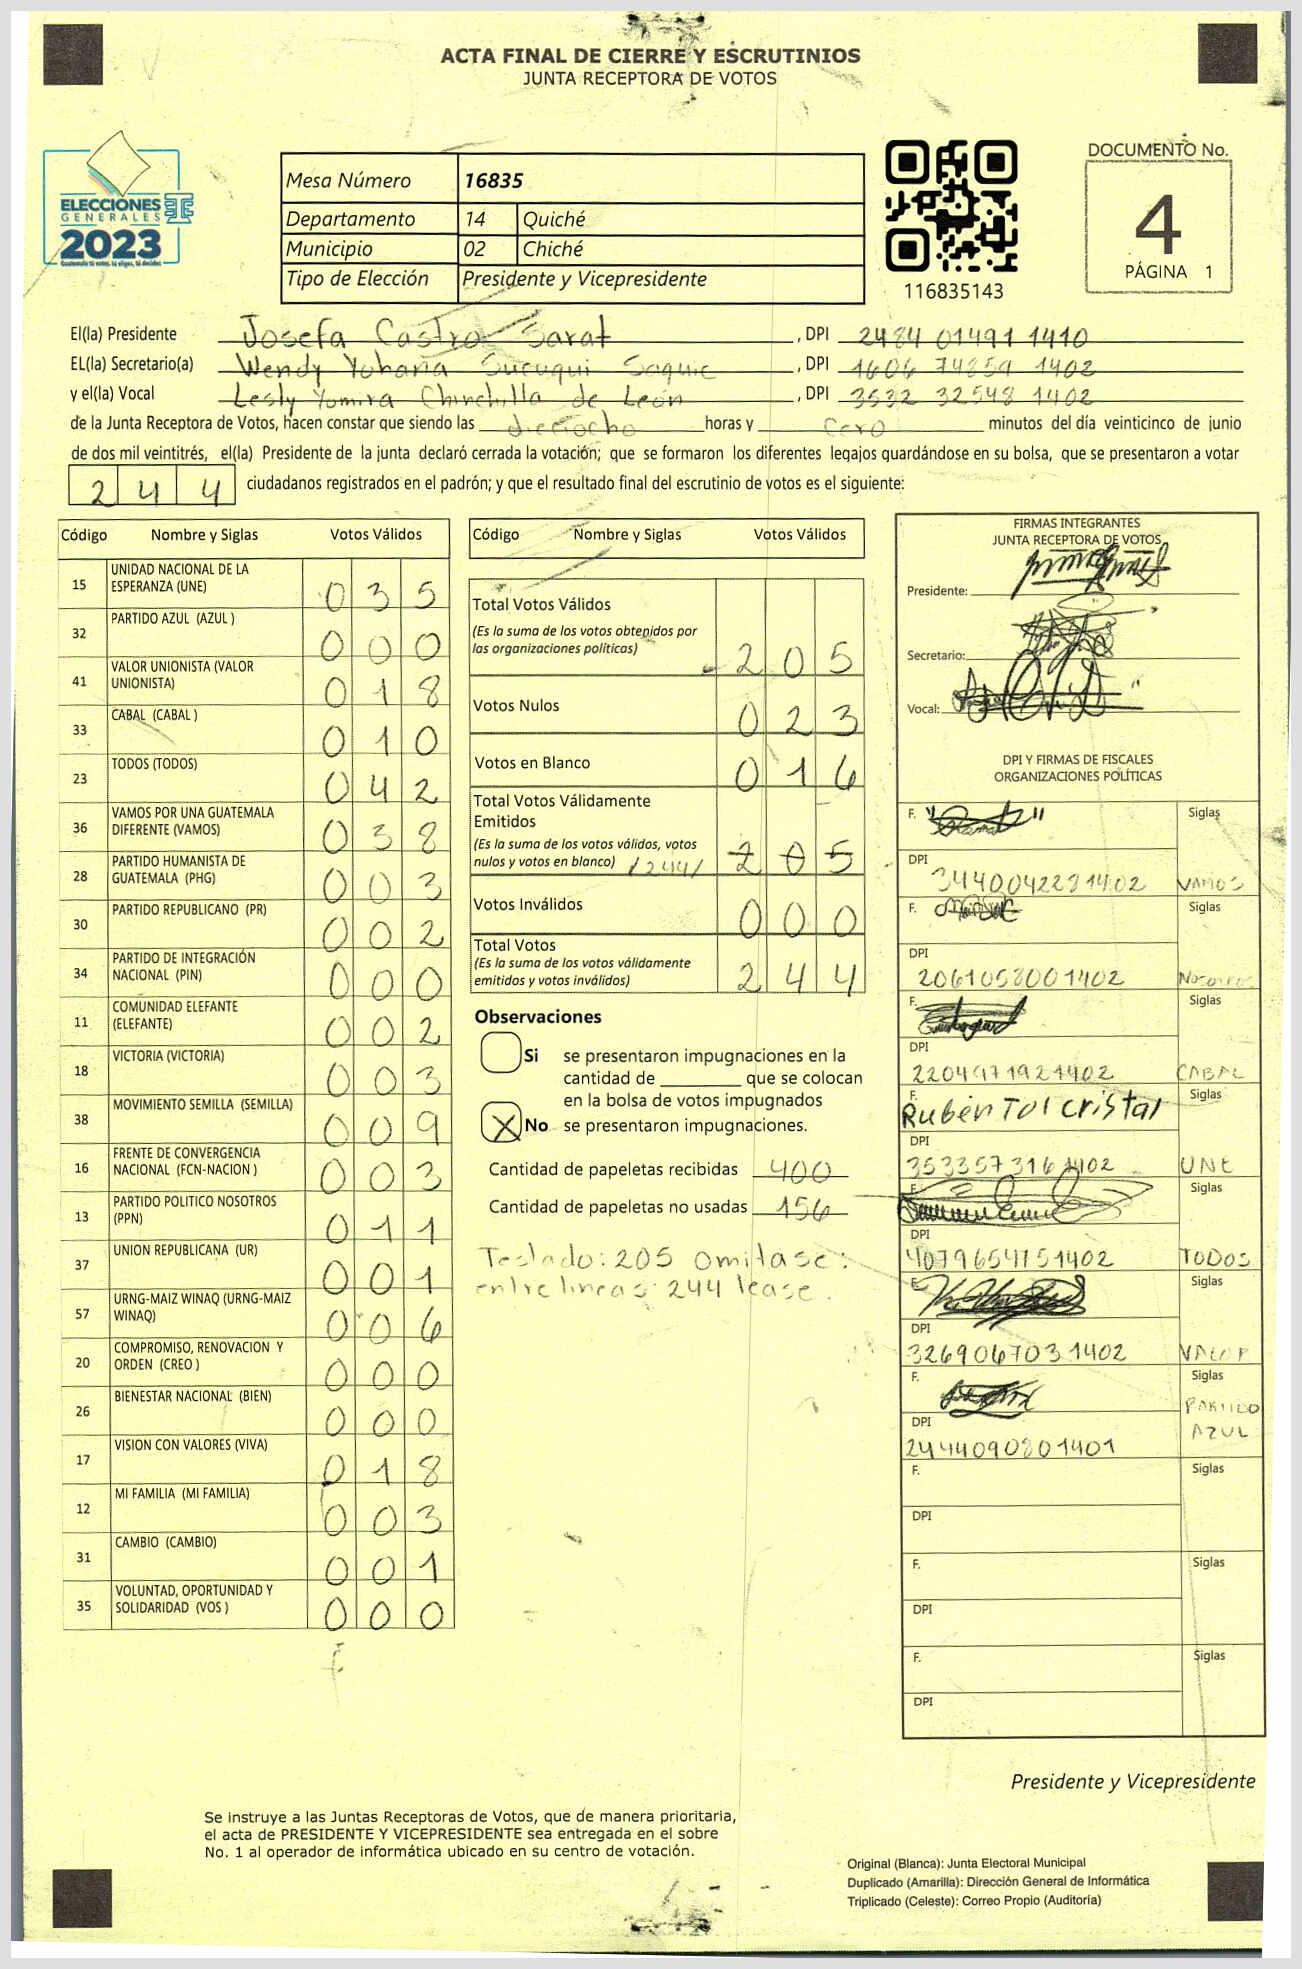 ACTA FINAL DE CIERRE Y ESCRUTINIOS
JUNTA RECEPTORA DE VOTOS
ELECCIONES
GENERALES
2023
Guatemala tú votas, tú eliges, tú decides
Mesa Número 16835
Departamento 14 Quiché
Municipio 02 Chiché
Tipo de Elección Presidente y Vicepresidente
116835143
DOCUMENTO No.
4
PÁGINA 1
El(la) Presidente Josefa Castro Sarat, DPI 2484 01491 1410
EL(la) Secretario(a) Wendy Yohana Sucuqui Saquic, DPI 1606 74859 1402
y el(la) Vocal Lesly Yomira Chinchilla de León, DPI 3532 32548 1402
de la Junta Receptora de Votos, hacen constar que siendo las dieciocho horas y cero minutos del día veinticinco de junio
de dos mil veintitrés, el(la) Presidente de la junta declaró cerrada la votación; que se formaron los diferentes legajos guardándose en su bolsa, que se presentaron a votar
244 ciudadanos registrados en el padrón; y que el resultado final del escrutinio de votos es el siguiente:
Código Nombre y Siglas Votos Válidos
15 UNIDAD NACIONAL DE LA ESPERANZA (UNE) 035
32 PARTIDO AZUL (AZUL ) 000
41 VALOR UNIONISTA (VALOR UNIONISTA) 018
33 CABAL (CABAL ) 010
23 TODOS (TODOS) 042
36 VAMOS POR UNA GUATEMALA DIFERENTE (VAMOS) 038
28 PARTIDO HUMANISTA DE GUATEMALA (PHG) 003
30 PARTIDO REPUBLICANO (PR) 002
34 PARTIDO DE INTEGRACIÓN NACIONAL (PIN) 000
11 COMUNIDAD ELEFANTE (ELEFANTE) 002
18 VICTORIA (VICTORIA) 003
38 MOVIMIENTO SEMILLA (SEMILLA) 009
16 FRENTE DE CONVERGENCIA NACIONAL (FCN-NACION ) 003
13 PARTIDO POLITICO NOSOTROS (PPN) 011
37 UNION REPUBLICANA (UR) 001
57 URNG-MAIZ WINAQ (URNG-MAIZ WINAQ) 006
20 COMPROMISO, RENOVACION Y ORDEN (CREO ) 000
26 BIENESTAR NACIONAL (BIEN) 000
17 VISION CON VALORES (VIVA) 018
12 MI FAMILIA (MI FAMILIA) 003
31 CAMBIO (CAMBIO) 001
35 VOLUNTAD, OPORTUNIDAD Y SOLIDARIDAD (VOS ) 000
Código Nombre y Siglas Votos Válidos
Total Votos Válidos
(Es la suma de los votos obtenidos por
las organizaciones políticas) 205
Votos Nulos 023
Votos en Blanco 016
Total Votos Válidamente
Emitidos
(Es la suma de los votos válidos, votos
nulos y votos en blanco) /244/ 205
Votos Inválidos 000
Total Votos
(Es la suma de los votos válidamente
emitidos y votos inválidos) 244
Observaciones
Si se presentaron impugnaciones en la
cantidad de ________ que se colocan
en la bolsa de votos impugnados
X No se presentaron impugnaciones.
Cantidad de papeletas recibidas 400
Cantidad de papeletas no usadas 156
Testado: 205 omitase:
entre lineas: 244 lease.
FIRMAS INTEGRANTES
JUNTA RECEPTORA DE VOTOS
Presidente:
Secretario:
Vocal:
DPI Y FIRMAS DE FISCALES
ORGANIZACIONES POLÍTICAS
F. Siglas
DPI 3440042281402 VAMOS
F. Siglas
DPI 2061058001402 Nosotros
F. Siglas
DPI 2204971921402 CABAL
F. Rubén Tol cristal Siglas
DPI 3533573161402 UNE
F. Siglas
DPI 4079654151402 TODOS
F. Siglas
DPI 3269067031402 VALOR
F. Siglas
DPI 2444090801401 PARTIDO AZUL
F. Siglas
DPI
F. Siglas
DPI
F. Siglas
DPI
Presidente y Vicepresidente
Se instruye a las Juntas Receptoras de Votos, que de manera prioritaria,
el acta de PRESIDENTE Y VICEPRESIDENTE sea entregada en el sobre
No. 1 al operador de informática ubicado en su centro de votación.
Original (Blanca): Junta Electoral Municipal
Duplicado (Amarilla): Dirección General de Informática
Triplicado (Celeste): Correo Propio (Auditoría)